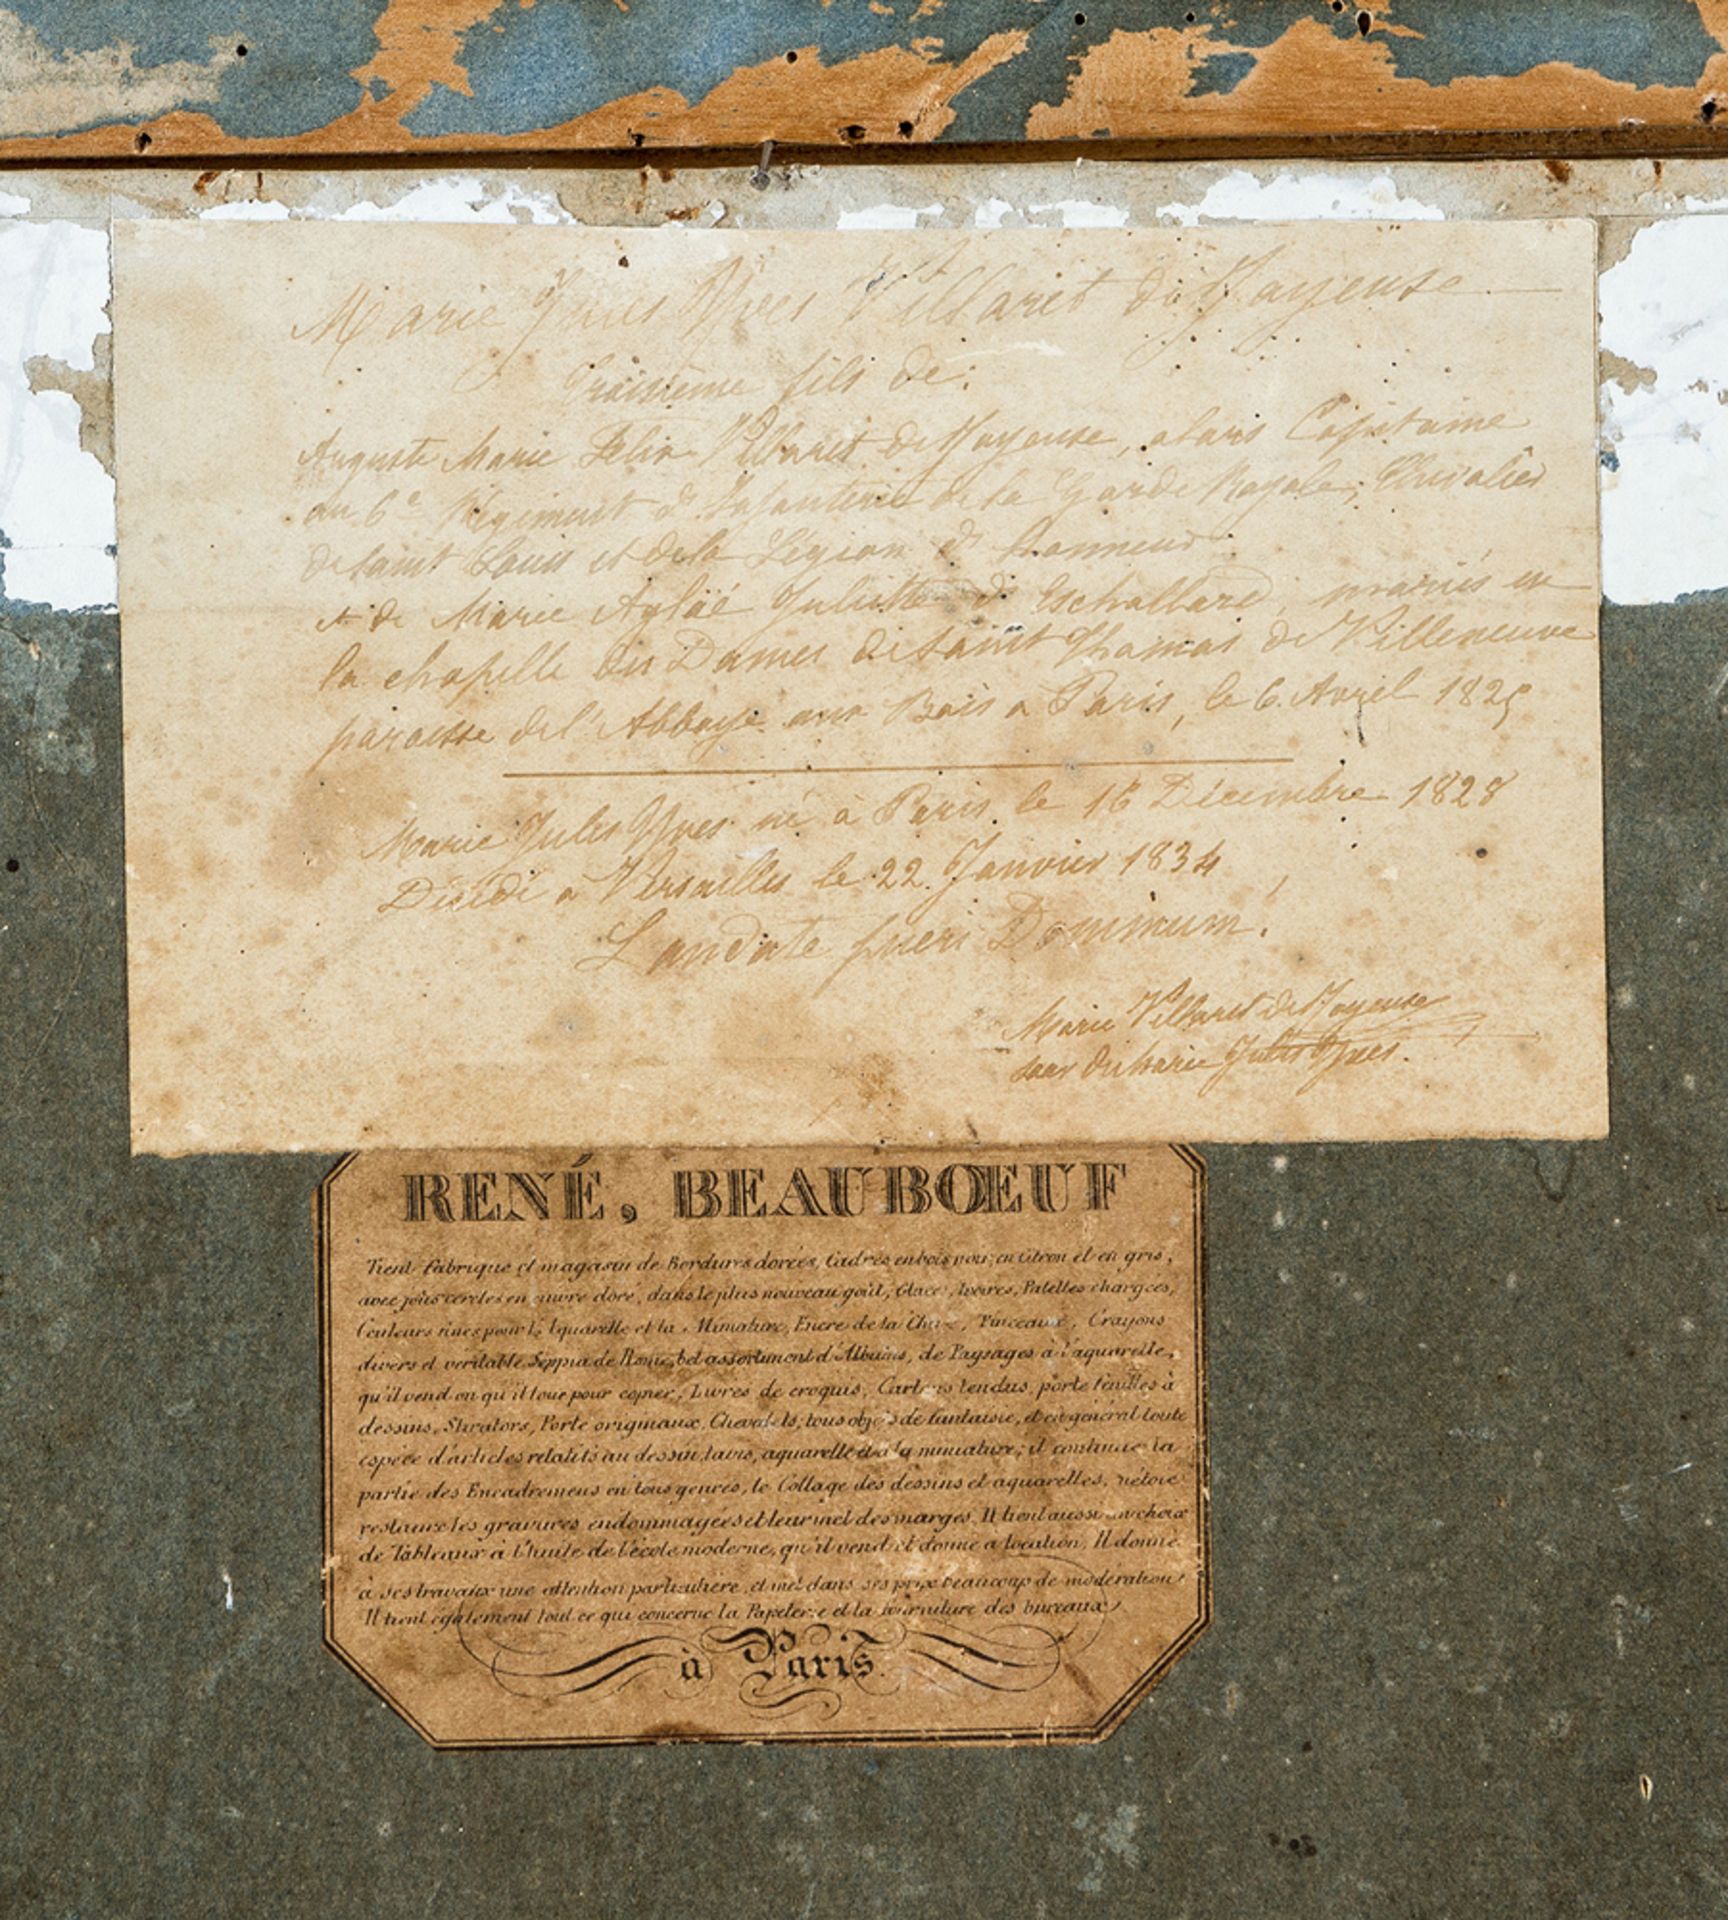 Marie Jules Yves Villaret de Joyeuse
troisième fils de:
Auguste Marie Félix Villaret de Joyeuse, alors Capitaine
au 6e Régiment d'Infanterie de la Garde Royale, Chevalier
de Saint Louis et de la Légion d'honneur
et de Marie Aglaé Juliette d'Eschallard, mariés en
la chapelle des Dames de Saint Thomas de Villeneuve
paroisse de l'Abbaye aux Bois à Paris, le 6 Avril 1825
Marie Jules Yves né à Paris le 16 Décembre 1828
Décédé à Versailles le 22 Janvier 1834
Laudate pueri Dominum!
Marie Villaret de Joyeuse
sœur de Marie Jules Yves.
RENÉ, BEAUBŒUF
Tient fabrique et magasin de Bordures dorées, Cadres en bois noir, en citron et en gris,
avec jolis cercles en cuivre doré, dans le plus nouveau goût, Glaces, Ivoires, Palettes chargées,
Couleurs fines pour l'Aquarelle et la Miniature, Encre de la Chine, Pinceaux, Crayons
divers et véritable Seppia de Rome, bel assortiment d'Albums, de Paysages à l'aquarelle,
qu'il vend ou qu'il loue pour copier, Livres de croquis, Cartons tendus, porte feuilles à
dessins, Stirators, Porte originaux, Chevalets, tous objets de fantaisie, et en général toute
espèce d'articles relatifs au dessin, lavis, aquarelle et à la miniature; il continue la
partie des Encadremens en tous genres, le Collage des dessins et aquarelles, nétoie
restaure les gravures endommagées et leur met des marges. Il tient aussi un choix
de Tableaux à l'huile de l'école moderne, qu'il vend et donne à location. Il donne
à ses travaux une attention particulière, et met dans ses prix beaucoup de modération.
Il tient également tout ce qui concerne la Papeterie et la fourniture des bureaux,
à Paris.